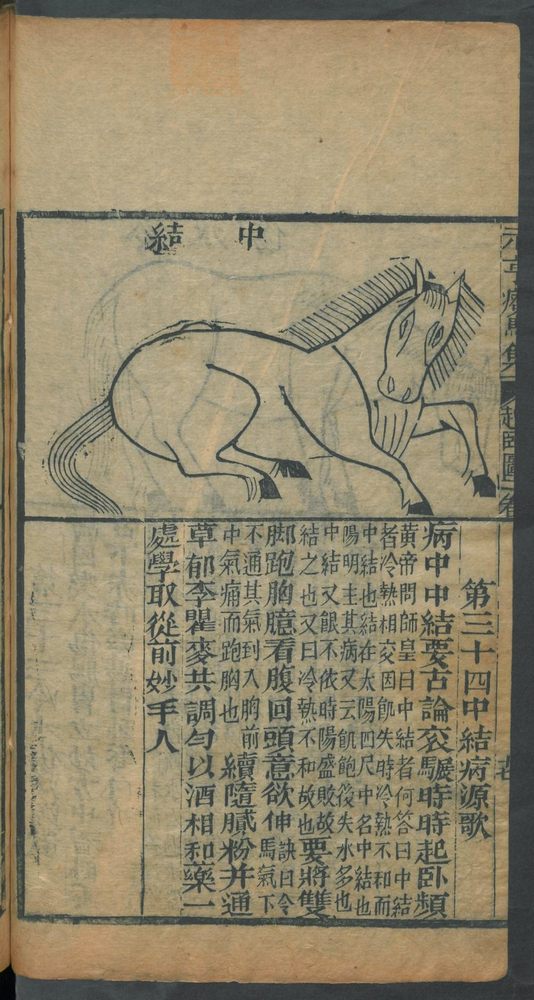 中結
元亨療馬集 起臥圖 卷
第三十四中結病源歌
病中中結要古論衮驏時時起卧頻
黃帝問師皇曰中結者何答曰中結
者冷熱相交因飢失時冷熱不和而
中結也結在太陽四尺中名中結也
陽明主其病又云飢飽後失水多也
中結又飲不依時陽盛敗故
結之也又曰冷熱不和故也要將雙
脚跑胸臆看腹回頭意欲伸馬氣下訣曰令
不通其氣到入胸前
中氣痛而跑胸也續隨膩粉并通
草郁李瞿麥共調勻以酒相和藥一
處學取從前妙手人